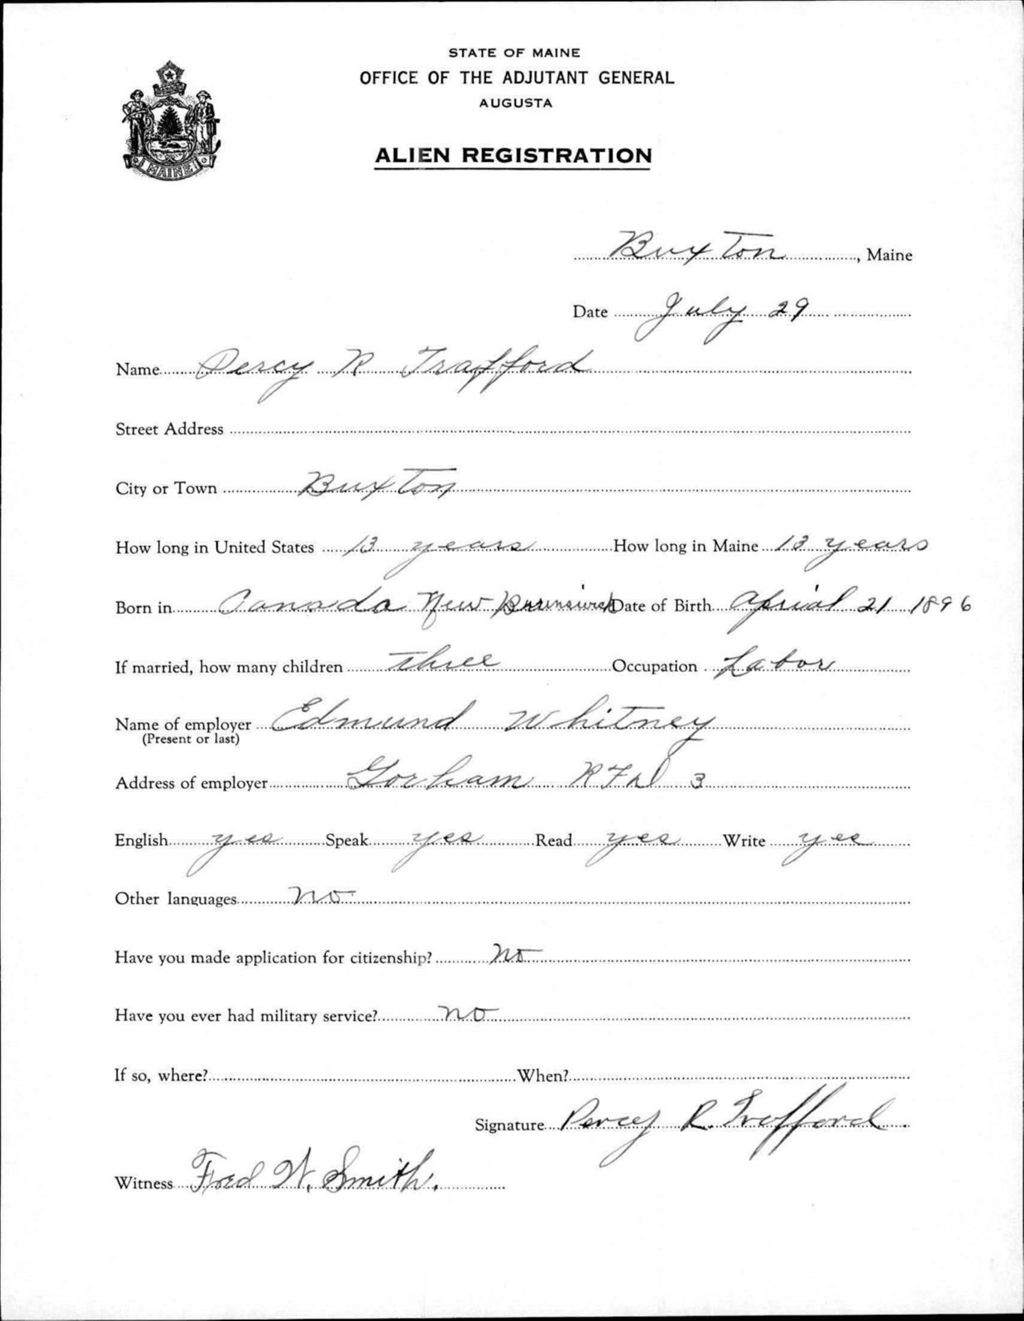 STATE OF MAINE
OFFICE OF THE ADJUTANT GENERAL
AUGUSTA
ALIEN REGISTRATION
MAINE
Buxton, Maine
Date July 29
Name Percy R Trafford
Street Address
City or Town Buxton
How long in United States 13 years How long in Maine 13 years
Born in Canada New Brunswick Date of Birth Aprial 21 1896
If married, how many children three Occupation Labor
Name of employer Edmund Whitney
(Present or last)
Address of employer Gorham RFD 3
English yes Speak yes Read yes Write yes
Other languages no
Have you made application for citizenship? no
Have you ever had military service? no
If so, where? When?
Signature Percy R. Trafford.
Witness Fred W. Smith.